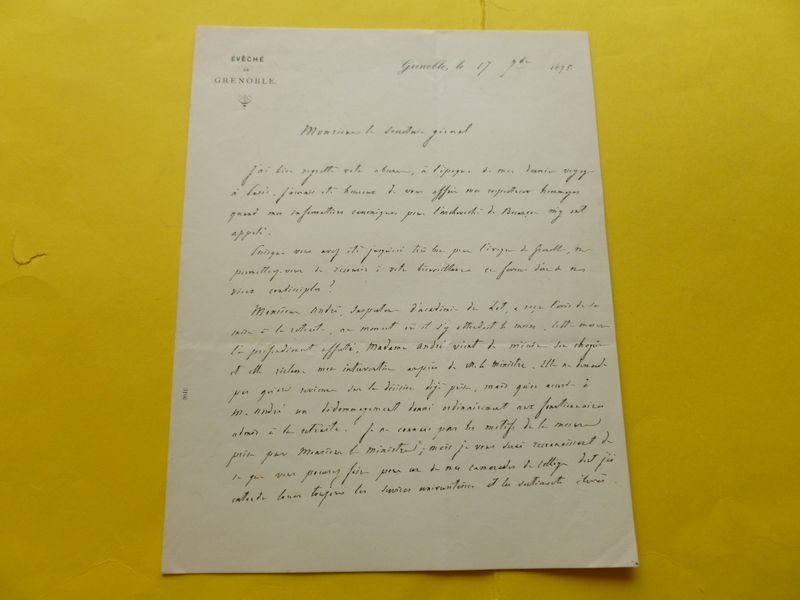 ÉVÊCHÉ
DE
GRENOBLE.
Grenoble, le 17 9bre 1875.
Monsieur le Secrétaire général
J'ai bien regretté votre absence, à l'époque de mon dernier voyage
à Paris. J'aurais été heureux de vous offrir mes respectueux hommages
quand mes informations canoniques pour l'archevêché de Besançon m'y ont
appelé.
Puisque vous avez été jusqu'ici très bon pour l'évêque de Grenoble, me
permettez-vous de recourir à votre bienveillance en faveur d'un de mes
vieux condisciples?
Monsieur André, Inspecteur d'académie du Lot, a reçu l'avis de sa
mise à la retraite, au moment où il s'y attendait le moins. Cette mesure
l'a profondément affecté. Madame André vient de mourir de chagrin
et elle réclame mon intervention auprès de M. le Ministre. Elle ne demande
pas qu'on revienne sur la décision déjà prise, mais qu'on accorde à
M. André un dédommagement donné ordinairement aux fonctionnaires
admis à la retraite. Je ne connais pas les motifs de la mesure
prise par Monsieur le Ministre; mais je vous serai reconnaissant de
ce que vous pourrez faire pour un de mes camarades de collège dont j'ai
entendu louer toujours les services universitaires et les sentiments élevés.